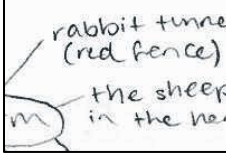 rabbit tunne
(red fence)
the sheep
in the
m